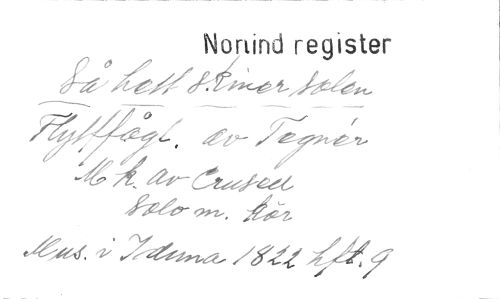 Norlind register
Så hett skiner solen
Flyttfågl. av Tegnér
Mk. av Crusell
Solo m. kör
Mus. i Iduna 1822 hft. 9